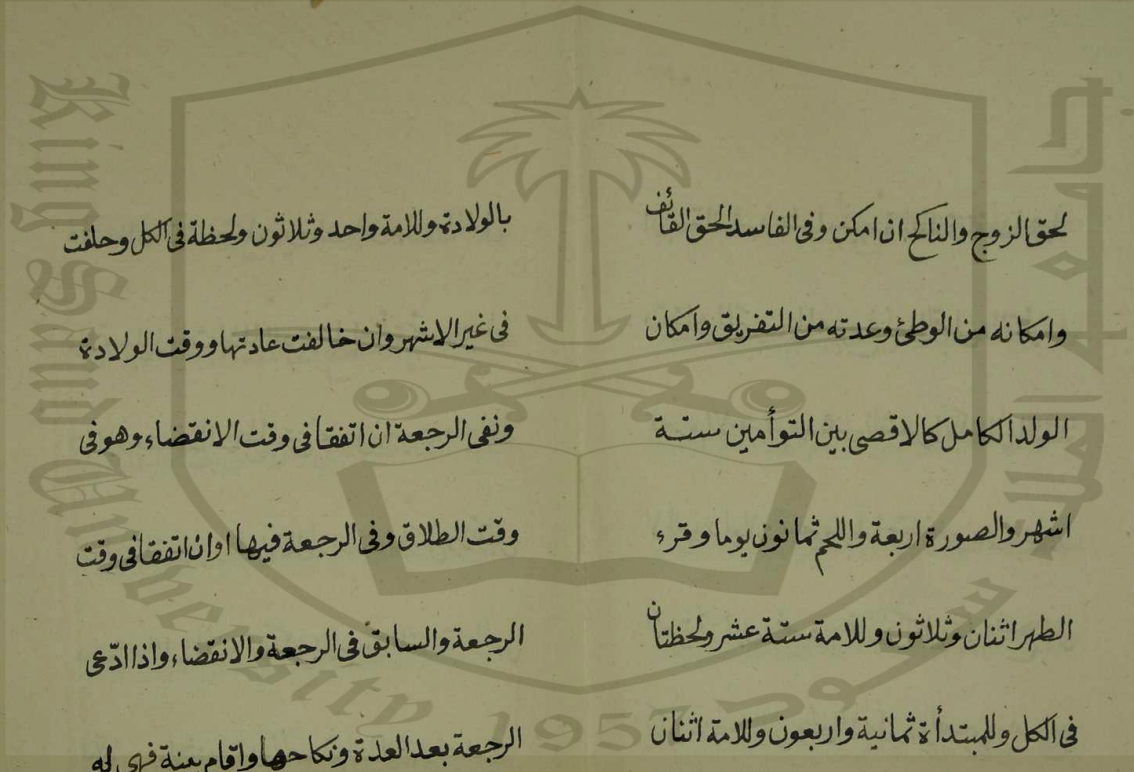 لحق الزوج والناكح ان امكن وفى الفاسد الحق القائف
وامكانه من الوطئ وعدته من التفريق وامكان
الولد الكامل كالاقصى بين التوأمين ستة
اشهر والصورة اربعة واللحم ثمانون يوما وقرء
الطهر اثنان وثلاثون وللامة ستة عشر ولحظتان
فى الكل وللمبتدأة ثمانية واربعون وللامة اثنان
بالولادة وللامة واحد وثلاثون ولحظة فى الكل وحلفت
فى غير الاشهر وان خالفت عادتها ووقت الولادة
ونفى الرجعة ان اتفقا فى وقت الانقضاء وهو فى
وقت الطلاق وفى الرجعة فيها او ان اتفقا فى وقت
الرجعة والسابق فى الرجعة والانقضاء واذا ادّعى
الرجعة بعد العدة ونكاحها واقام بينة فهى له
King Saud University
جامعة الملك سعود
1957